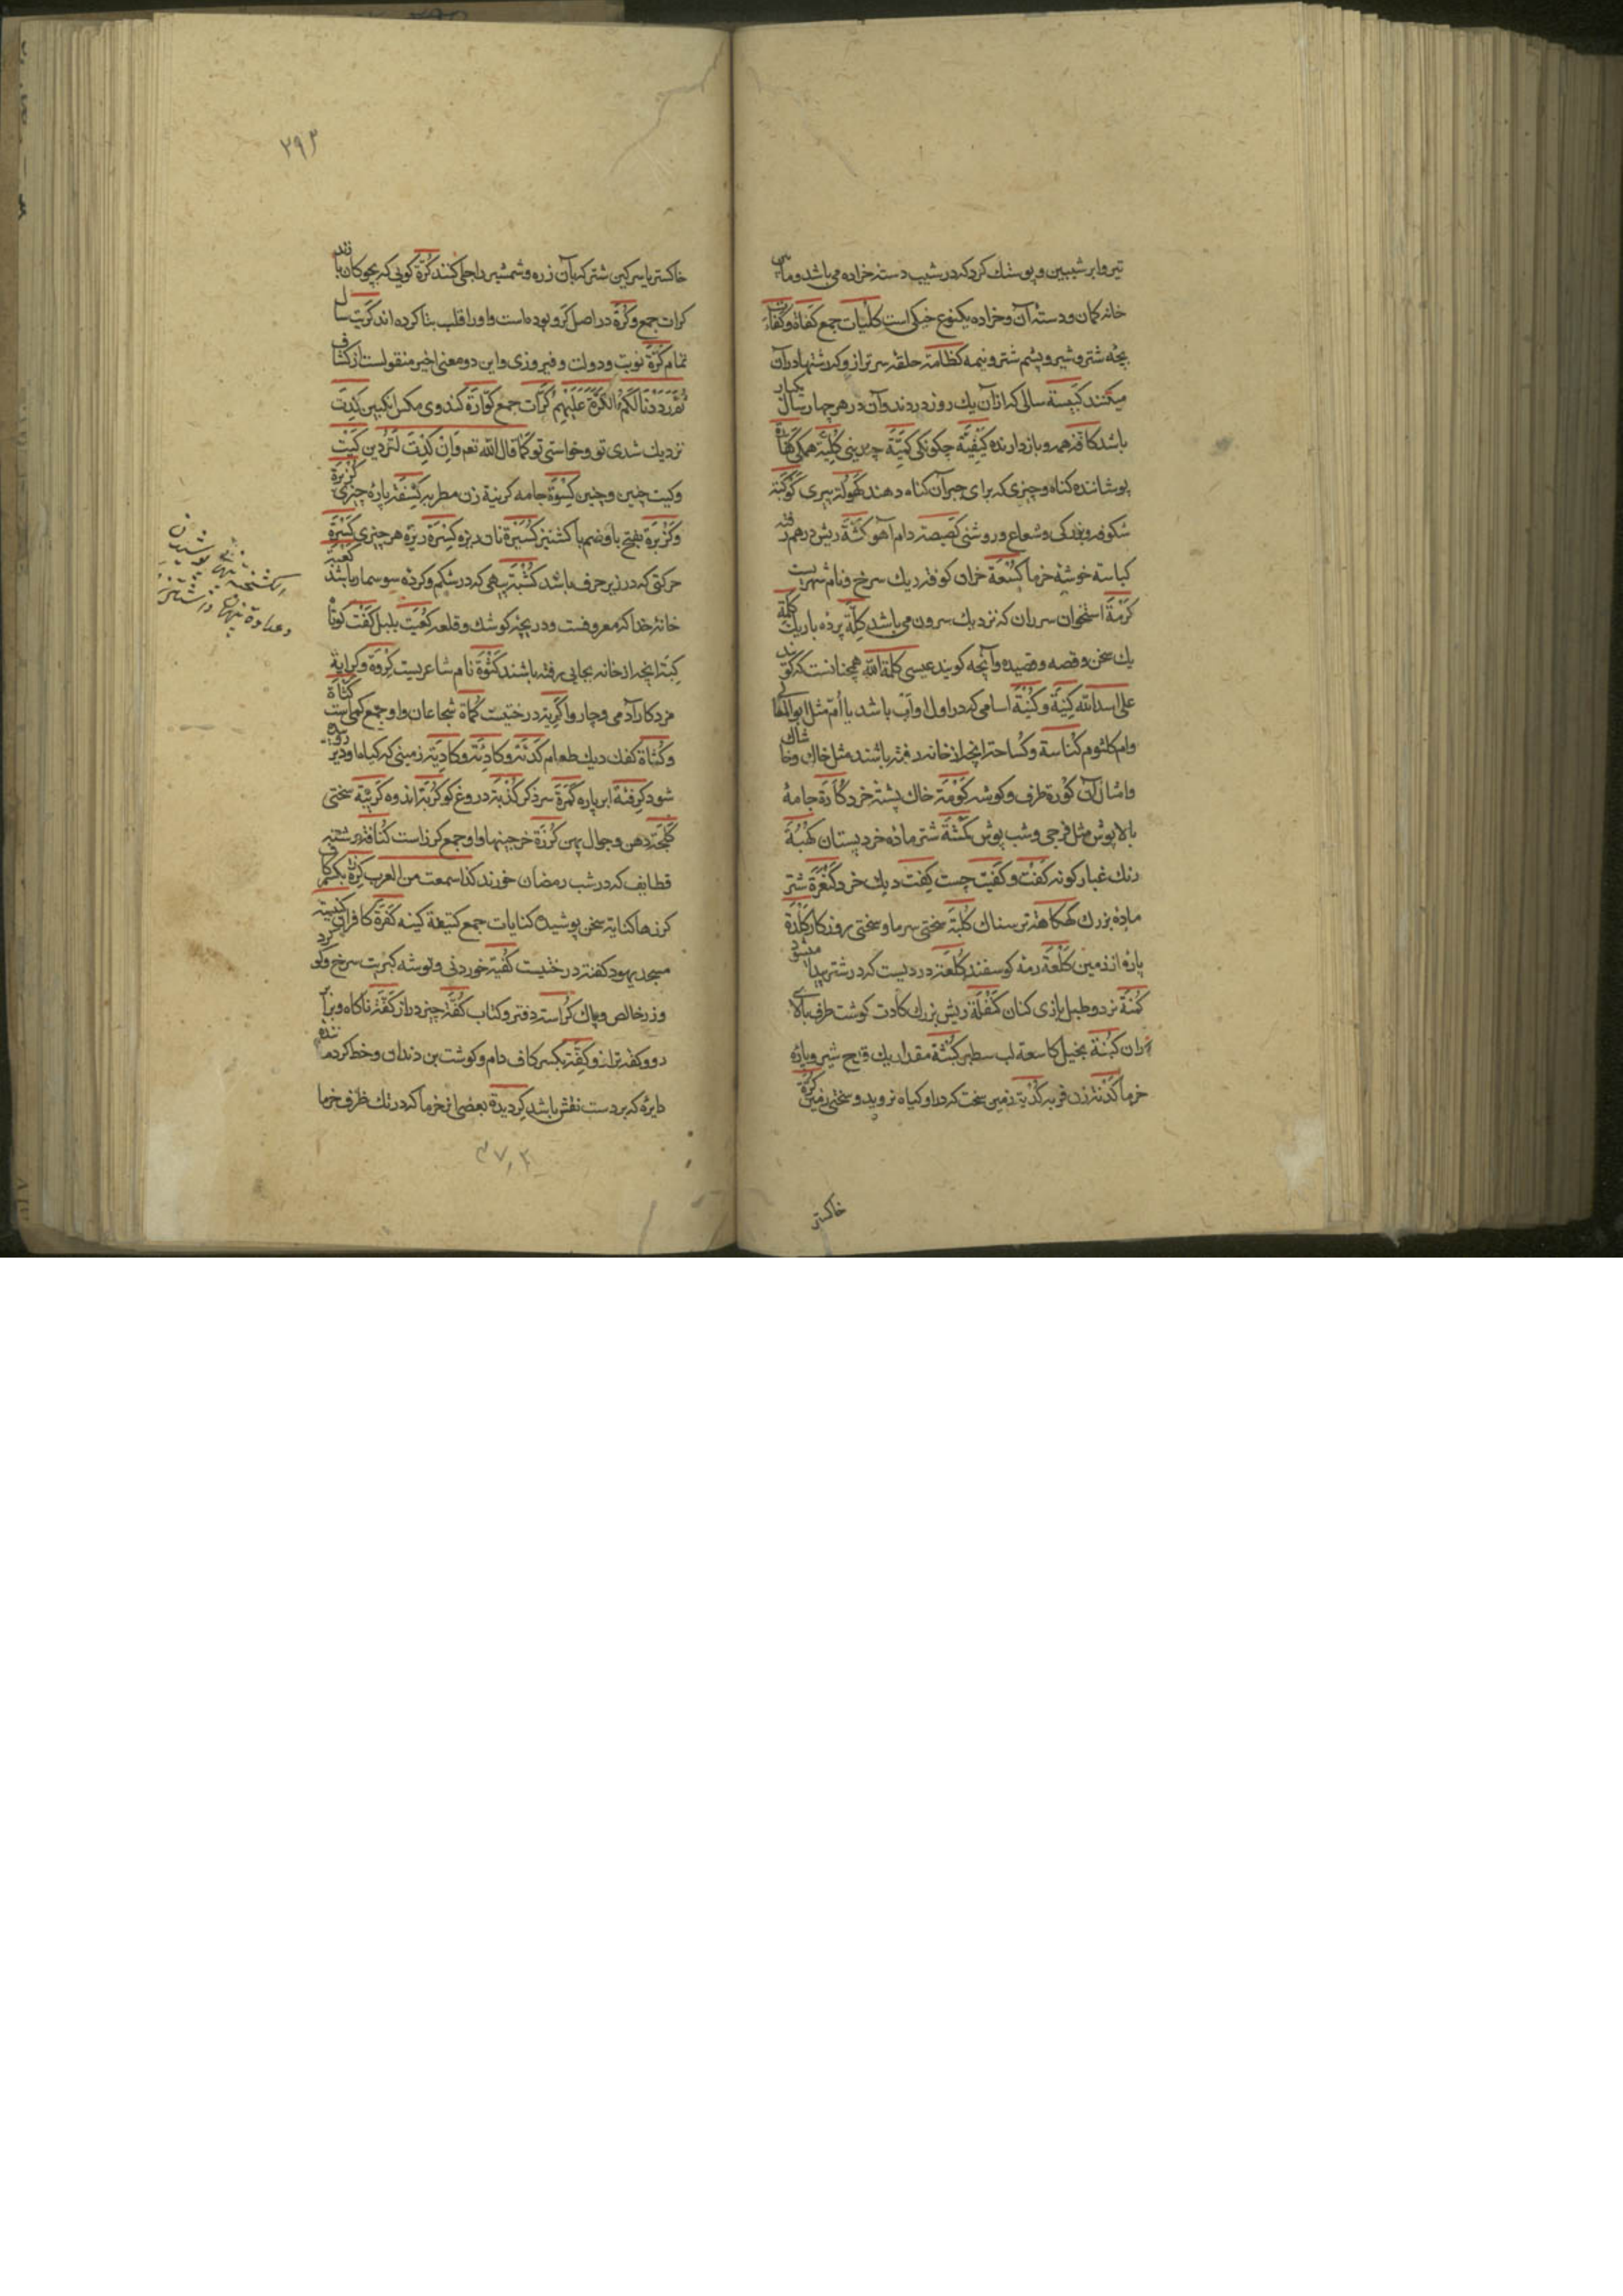 تیر وابر شیبین وپوستك كردكه در شیب دسته خراده می باشد ومابین
خانه كمان ودسته آن وخراده یكنوع خیكی است كلیات جمع كفاة وكفاءت
بچه شتر وشیر وپشم شتر ونیمه كظامة حلقه سر ترازو كه رشتها در آن
میكنند كبیسة سالی كه از آن یك روز دزدند وآن در هر چهار سال یكبار
باشد كافة همه وباز دارنده كیفیة چكونكی كمیة چندینی كلیة همكی كفارة
پوشاننده كناه وچیزی كه برای جبر آن كناه دهند كهولة پیری كوكبة
شكوفه وبزركی وشعاع وروشنی كصیصة دام آهو كثة ریش درهم رفته
كباسة خوشه خرما كسعة خران كوفة ریك سرخ ونام شهریست
كرمة استخوان سر ران كه نزدیك سرون می باشد كلة پرده باریك كلمة
یك سخن وقصه وقصیده وآنچه كویند عیسی كلمة الله همچنانست كه كویند
علی اسد الله كنیة وكنیة اسامی كه در اول او اب باشد یا ام مثل ابو القا
وام كلثوم كناسة وكساحة انچه از خانه رفته باشند مثل خاك وخاشاك
وامثال آن كورة طرف وكوشه كومة خاك پشته خرد كارة جامه
بالاپوش مثل فرجی وشب پوش كمشة شتر ماده خرد پستان كهبة
رنك غبار كونه كفت وكفیت چست كفت دیك خرد كنعرة شتر
ماده بزرك كهكاهة ترسناك كلبة سختی سرما وسختی روزكار كلدة
پاره از زمین كلعة رمه كوسفند كلعة دردیست كه در شتر پیدا میشود
كمنة نرد وطبل بازی كنان كنفلة ریش بزرك كادت كوشت طرف بالای
ران كبنة بخیل كاسعة لب سطبر كبثة مقدار یك قدح شیر ویاره
خرما كدنة زن فربه كدیة زمین سخت كه درو كیاه نروید وسختی زمین كرة
خاكستر
۲۹۳
خاكستر یا سركین شتر كه بآن زره وشمشیر را جلی كنند كرة كویی كه بچوكان بازند
كرات جمع وكرة در اصل كرو بوده است واو را قلب بتا كرده اند كریت سال
تمام كرة نوبت ودولت وفیروزی واین دو معنی اخیر منقولست از كشاف
ثم رددنا لكم الكرة علیهم كرات جمع كوارة كندوی مكس انكبین كدت
نزدیك شدی تو وخواستی تو كما قال الله تعم وان كدت لتردین كیت
وكیت چنین وچنین كسوة جامه كرینة زن مطربه كسفة پاره چیزی كزبرة
وكزبرة بفتح با وضم با كشنیز كسیرة نان ریزه كسرة ریزه هر چیزی كسرة
حركتی كه در زیر حرف باشد كشیة پیهی كه در شكم وكرده سوسمار باشد كعبة
خانه خدا كه معروفست ودریچه كوشك وقلعه كعیت بلبل كفت كوتاه
كبة انچه از خانه بجایی رفته باشند كثوة نام شاعریست كروة وكرایة
مزد كار آدمی وچاروا كریة درختیست كماة شجاعان واو جمع كمی است كثاة
وكثاة كفك دیك طعام كدنة وكادئة وكادیة زمینی كه كیاه او دیر روید
شود كرفئة ابر پاره كمرة سر ذكر كذبة دروغ كو كربة اندوه كریهة سختی
كلحة دهن وجوال پهن كرزة خرجینها واو جمع كرز است كنافة رشته
قطایف كه در شب رمضان خورند كذا سمعت من العرب كرة بكسر كاف
كرزها كنایة سخن پوشیده كنایات جمع كتیفة كینه كفرة كافران كنیسة
مسجد یهود كفنة درختیست كفیة خوردنی وتوشه كبریت سرخ وكوكرد
وزر خالص وپاك كراسة دفتر وكتاب كفة چیز دراز كفة ناكاه وبرابر
دو وكفه ترازو كفة بكسر كاف دام وكوشت بن دندان وخط كرد ماننده
دایره كه بر دست نقش باشد كردیدة بعضی از خرما كه در تك ظرف خرما